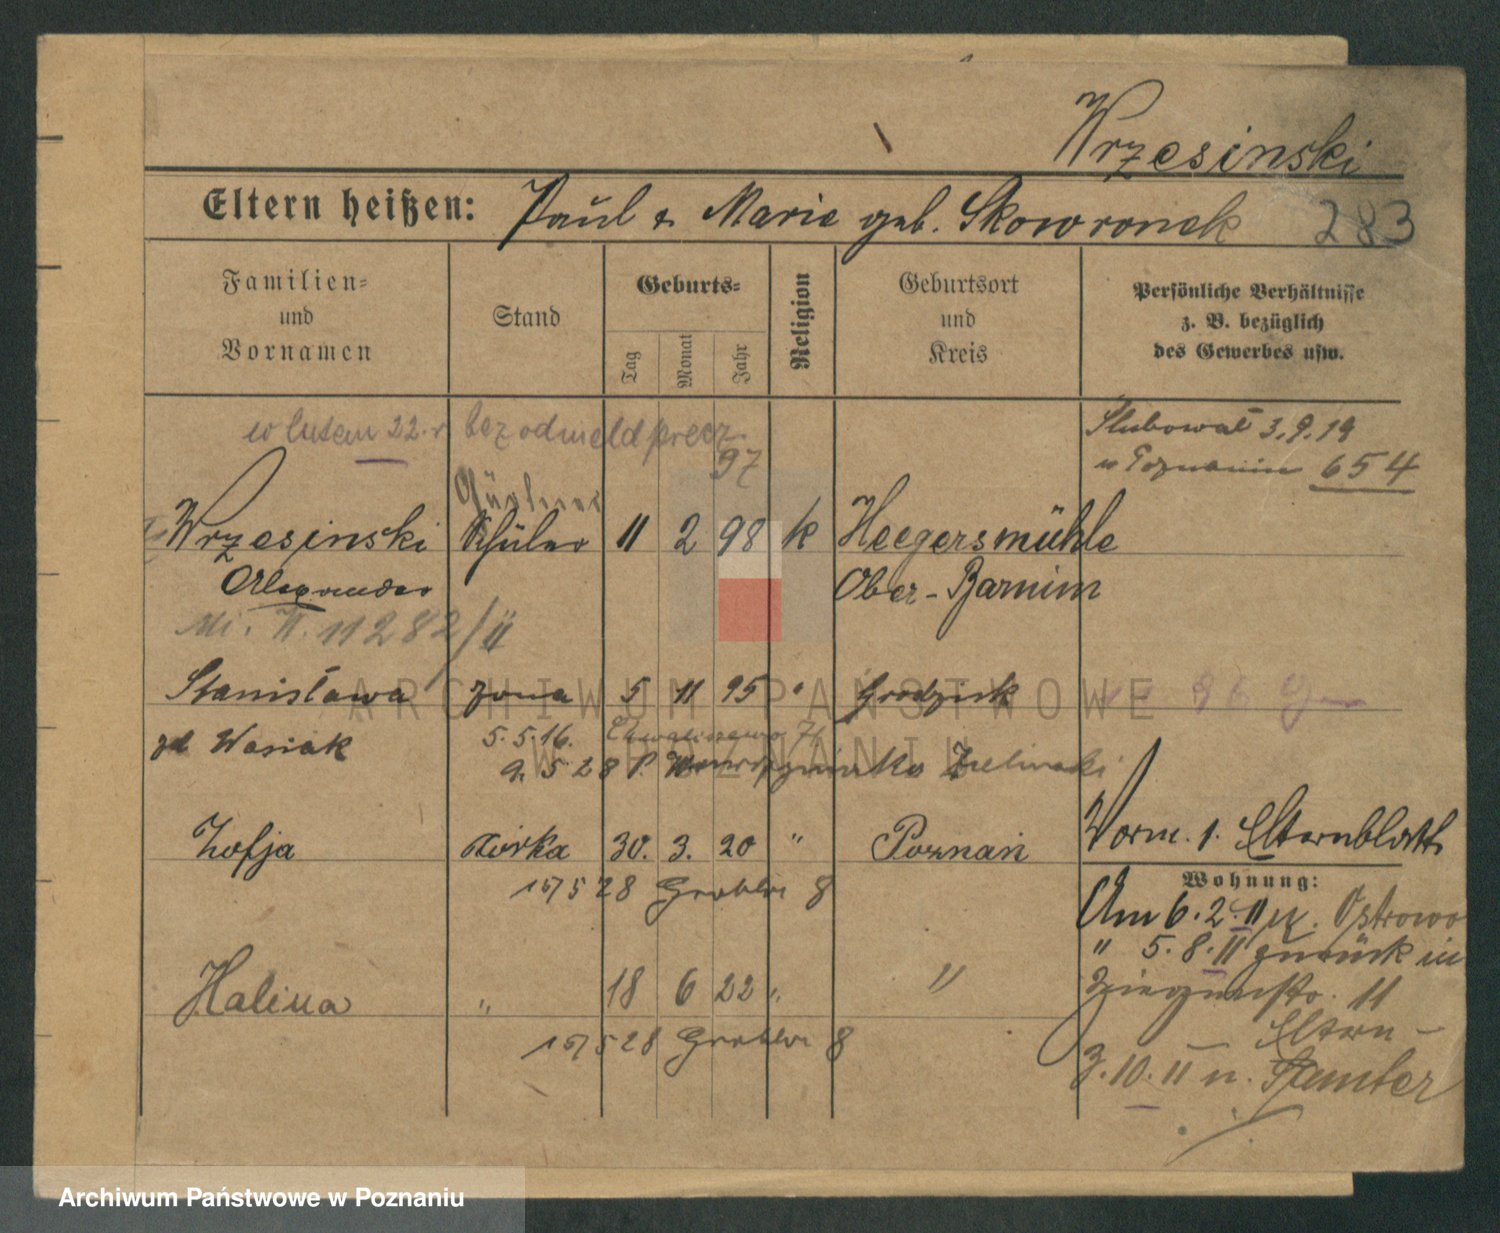 Wrzesinski
Eltern heißen: Paul u. Marie geb. Skowronek 283
Familien-
und
Vornamen
Stand
Geburts-
Tag
Monat
Jahr
Religion
Geburtsort
und
Kreis
Persönliche Verhältnisse
z. B. bezüglich
des Gewerbes usw.
w lutem 22 r bez odmeld
97
Ślubował 3.9.19
w Poznaniu 654
Wrzesinski Schüler 11 2 98 k Heegersmühle
Alexander Ober-Barnim
11282/II
Stanisława żona 5 11 95 " Grodzisk
zd Wasiak 5.5.16.
9.5 28
Zofja córka 30. 3. 20 " Poznań
Vorm. s. Elternblatt
15/5 28 Grobla 8
Wohnung:
Am 6.2.11 Ostrowo
" 5.8.11 zurück in
Halina " 18 6 22 " "
11
Eltern-
15/5 28 Grobla 8
3.10.11 n. Samter
ARCHIWUM PAŃSTWOWE
W POZNANIU
Archiwum Państwowe w Poznaniu